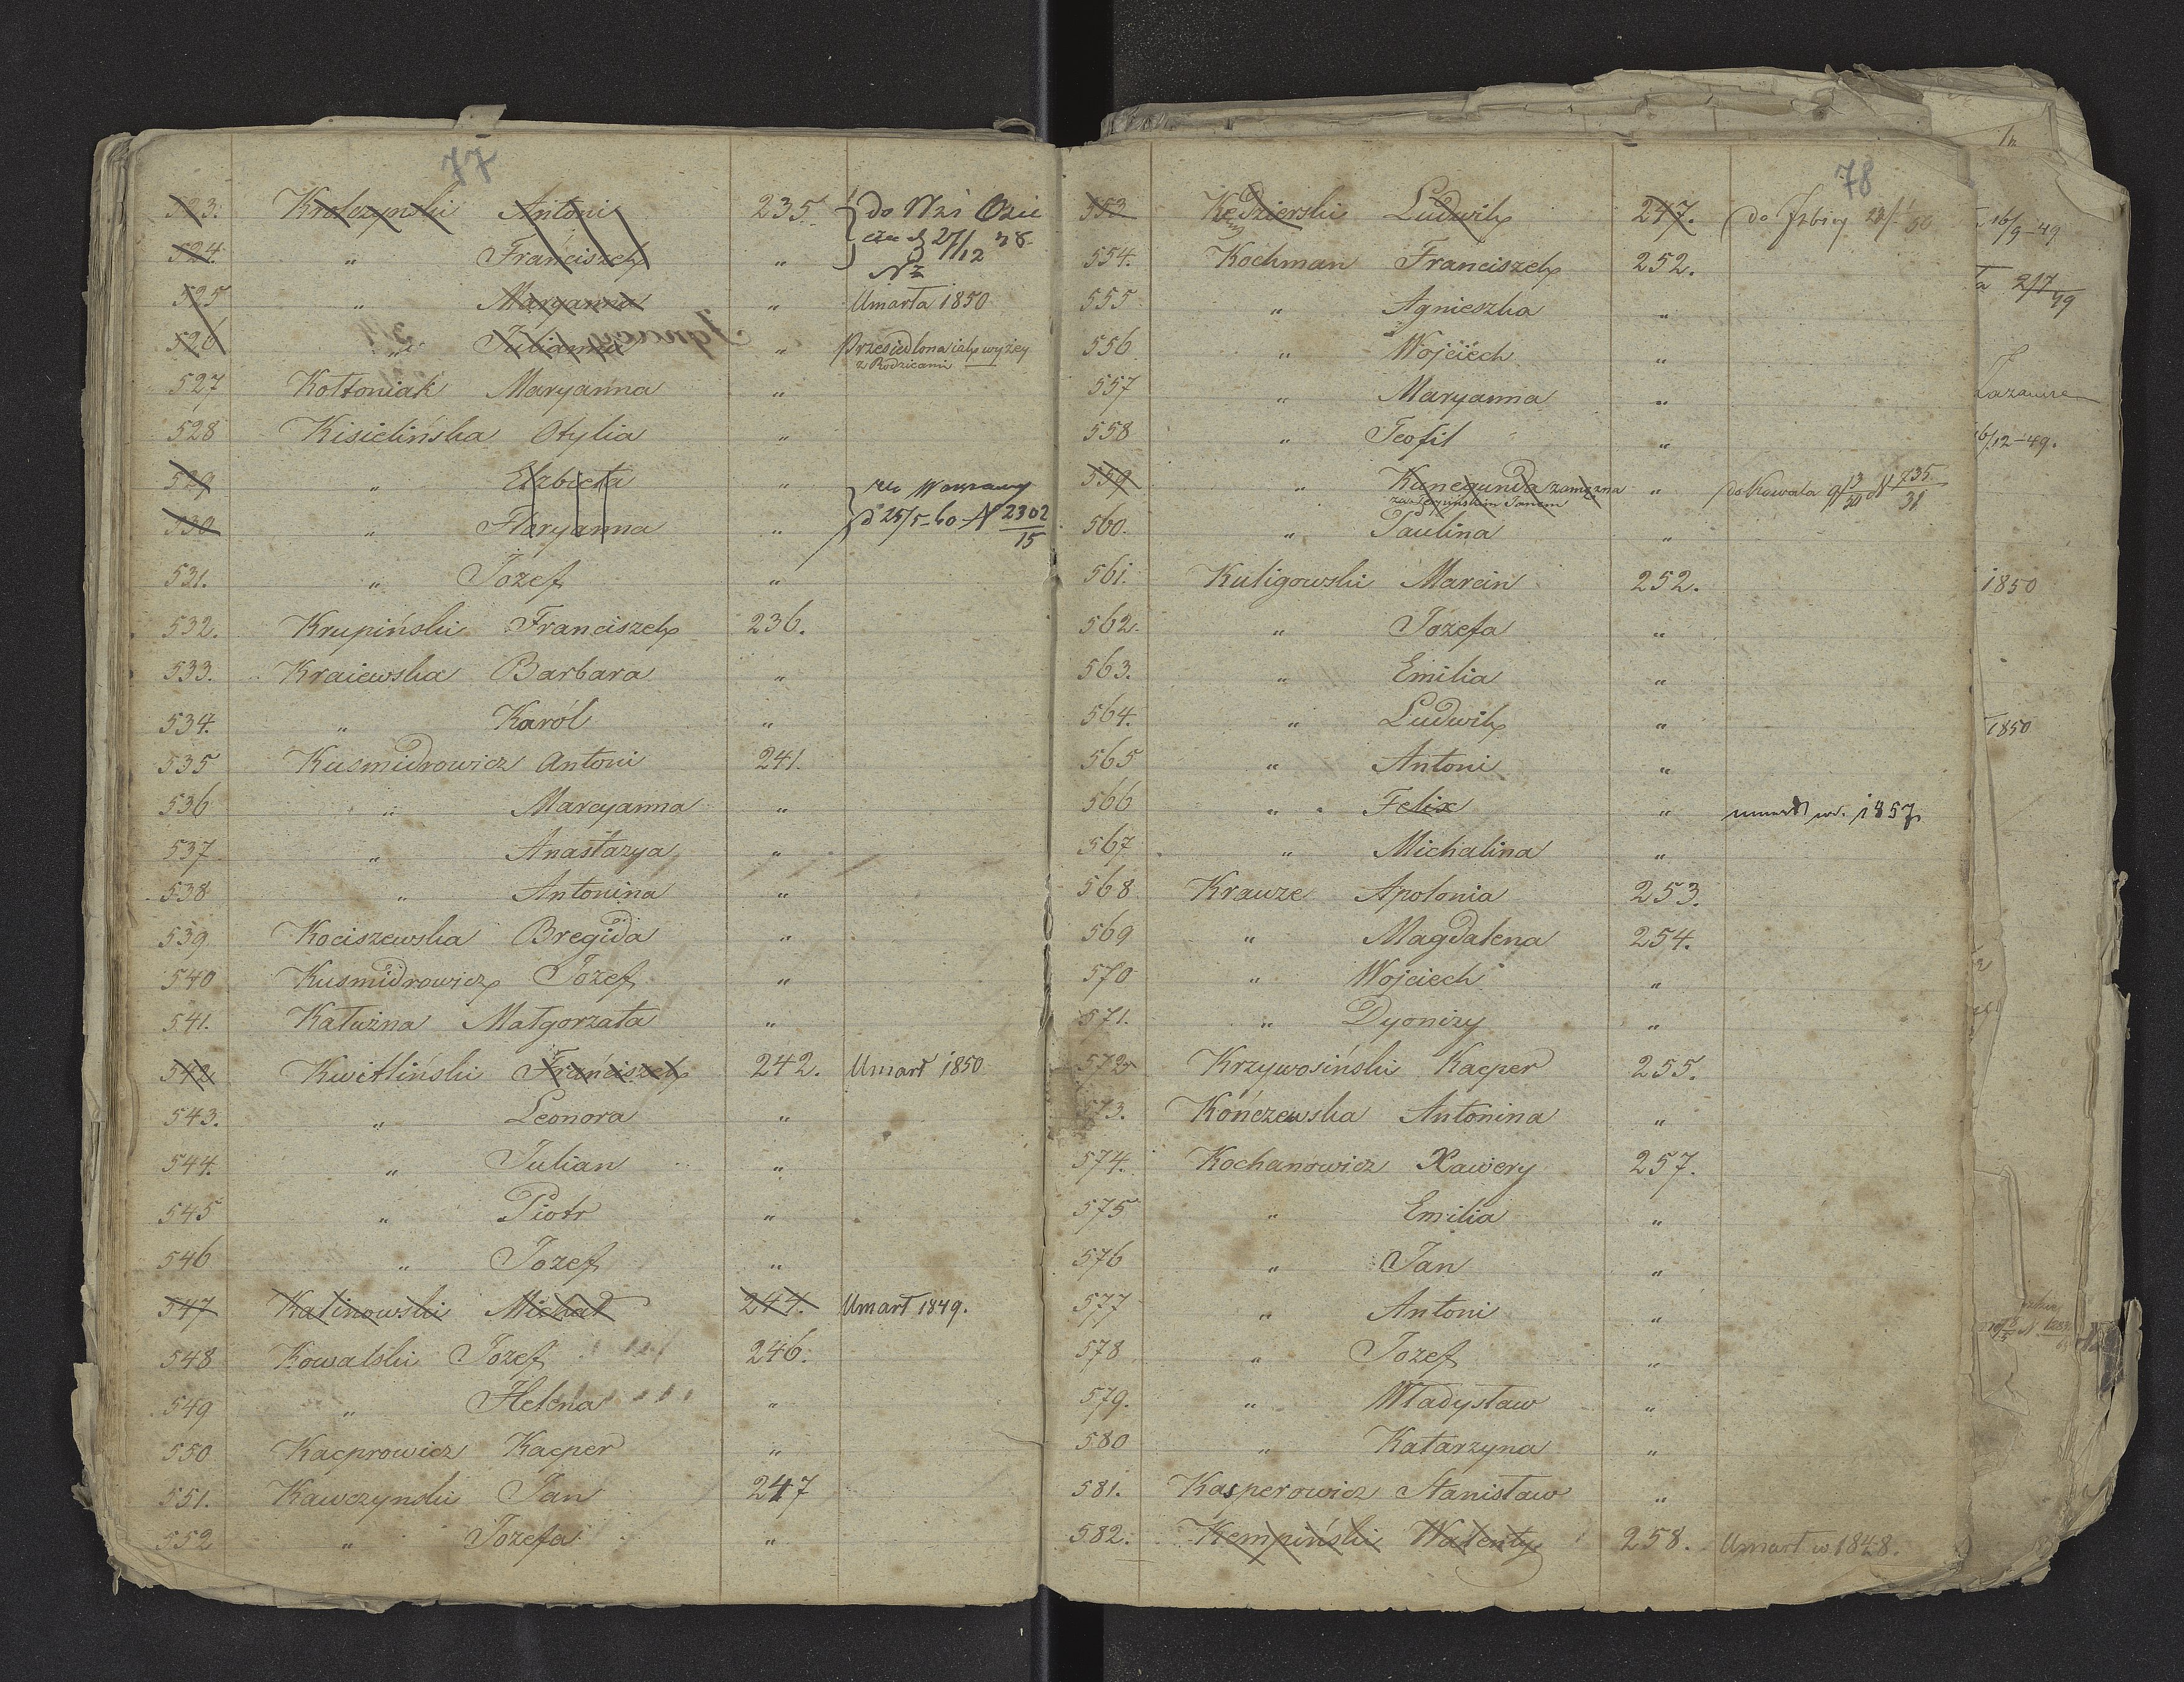 77
523. Krolczynski Antoni 235. do Wsi
524. " Franciszek " 27/12
525 " Maryanna " Umarła 1850
526 " Julianna " Przesiedlona iak wyżey
z Rodzicami
527 Kołtoniak Maryanna "
528 Kisielińska Otylia "
529 " Elzbieta " do Warszawy
530 " Floryanna " d 25/5-60 N 2302/15
531. " Jozef "
532. Krupiński Franciszek 236.
533. Kraiewska Barbara "
534. " Karól "
535 Kusmidrowicz Antoni 241.
536 " Marcyanna "
537 " Anastazya "
538 " Antonina "
539 Kociszewska Bregida "
540 Kusmidrowicz Jozef "
541. Kałużna Małgorzata "
542 Kwitliński Franciszek 242. Umarł 1850
543. " Leonora "
544. " Julian "
545 " Piotr "
546 " Jozef "
547 Kalinowski Michał 244. Umarł 1849.
548 Kowalski Jozef 246.
549 " Helena "
550 Kacprowicz Kacper "
551. Kawczynski Jan 247
552 " Jozefa "
78
553 Kędzierski Ludwik 247. do Izbicy
554. Kochman Franciszek 252.
555 " Agnieszka "
556 " Wojciech "
557 " Maryanna "
558 " Teofil "
559 " Kunegunda zamężna " do Kowala
560. " Paulina "
561. Kuligowski Marcin 252.
562. " Jozefa "
563. " Emilia "
564. " Ludwik "
565 " Antoni "
566 " Felix " umarł w r. 1857
567 " Michalina "
568 Krauze Apolonia 253.
569 " Magdalena 254.
570 " Wojciech "
571. " Dyonizy "
572 Krzywosiński Kacper 255.
573. Kończewska Antonina "
574. Kochanowicz Xawery 257.
575 " Emilia "
576 " Jan "
577 " Antoni "
578 " Jozef "
579. " Władysław "
580 " Katarzyna "
581. Kasperowicz Stanisław "
582. Kempiński Walenty 258. Umarł w 1848.
16/9-49
2/7 49
16/12-49.
1850
1850